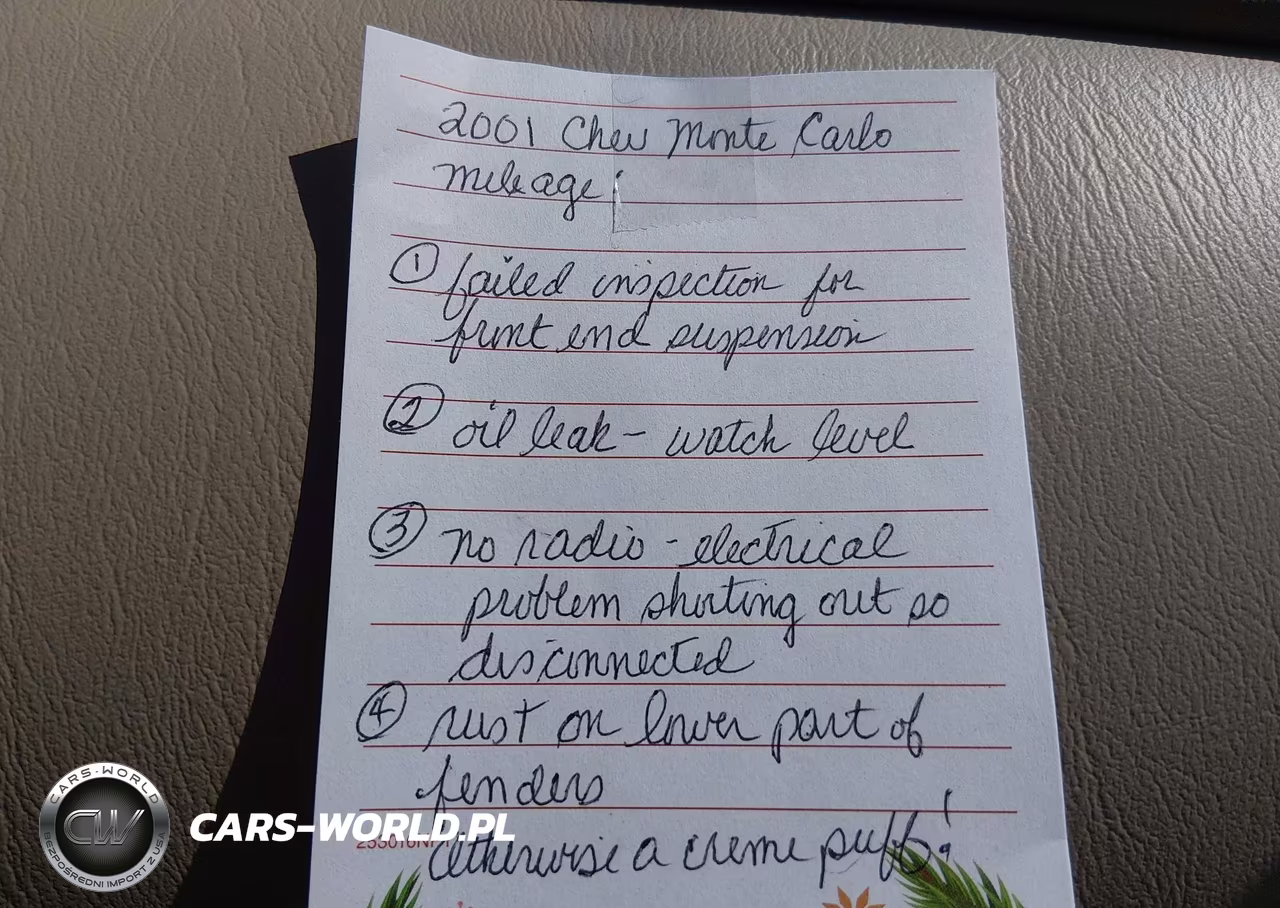 2001 Chev Monte Carlo
mileage:
① failed inspection for
front end suspension
② oil leak - watch level
③ no radio - electrical
problem shorting out so
disconnected
④ rust on lower part of
fenders
otherwise a creme puff!
CARS-WORLD.PL
CARS-WORLD
CW
BEZPOŚREDNI IMPORT Z USA